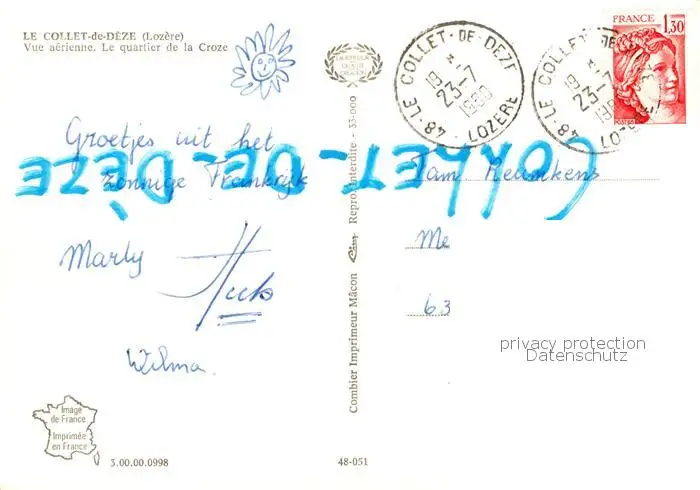 LE COLLET-de-DÈZE (Lozère)
Vue aérienne. Le quartier de la Croze
Groetjes uit het
zonnige Frankrijk
Marly
Huub
Wilma.
Image
de France
Imprimée
en France
3.00.00.0998
48-051
Combier Imprimeur Mâcon
Repro. Interdite - 33-000
48-LE COLLET-DE-DEZE
LOZERE
19 H
23-7
1980
48-LE COLLET-DE
19
23-7
198
LO
FRANCE
1,30
POSTES
COLLET-DE-DÈZE
Fam
Me
63
privacy protection
Datenschutz